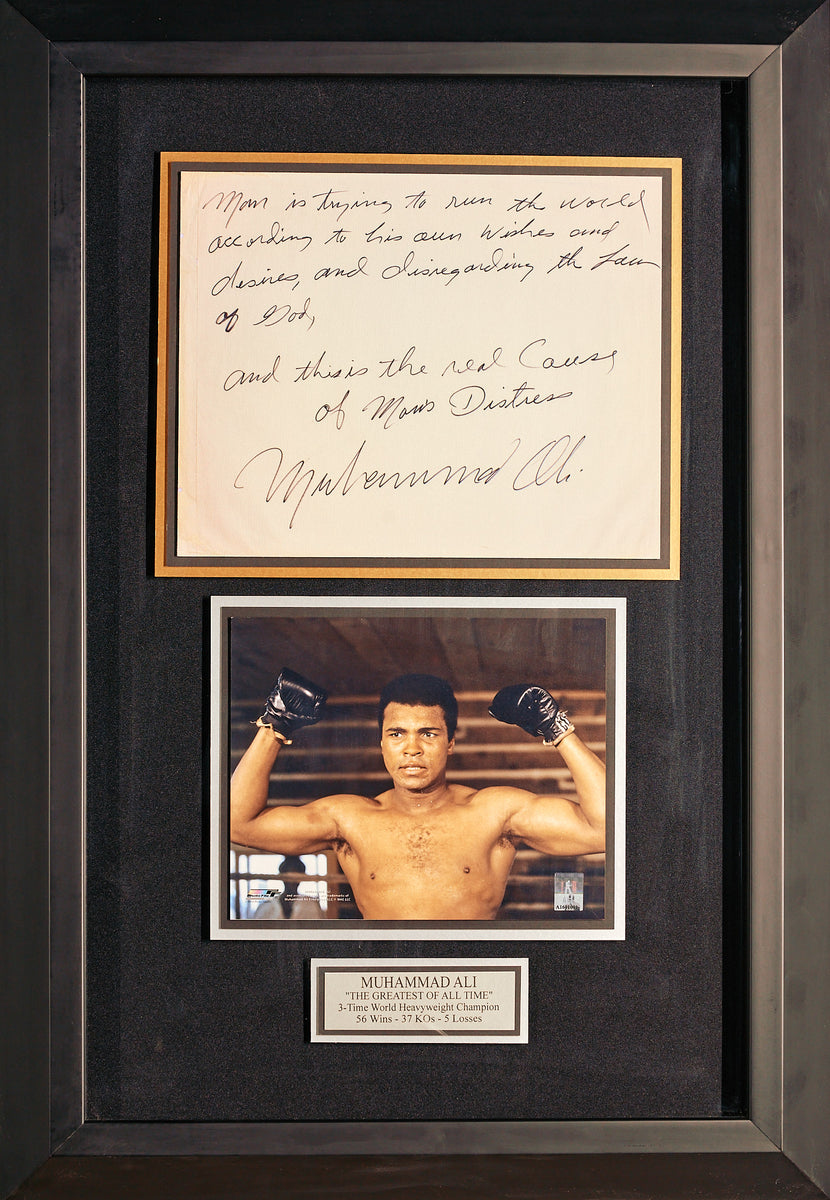 Man is trying to run the world
according to his own wishes and
desires, and disregarding the Law
of God,
and this is the real Cause
of Man's Distress
Muhammad Ali
MUHAMMAD ALI
"THE GREATEST OF ALL TIME"
3-Time World Heavyweight Champion
56 Wins - 37 KOs - 5 Losses